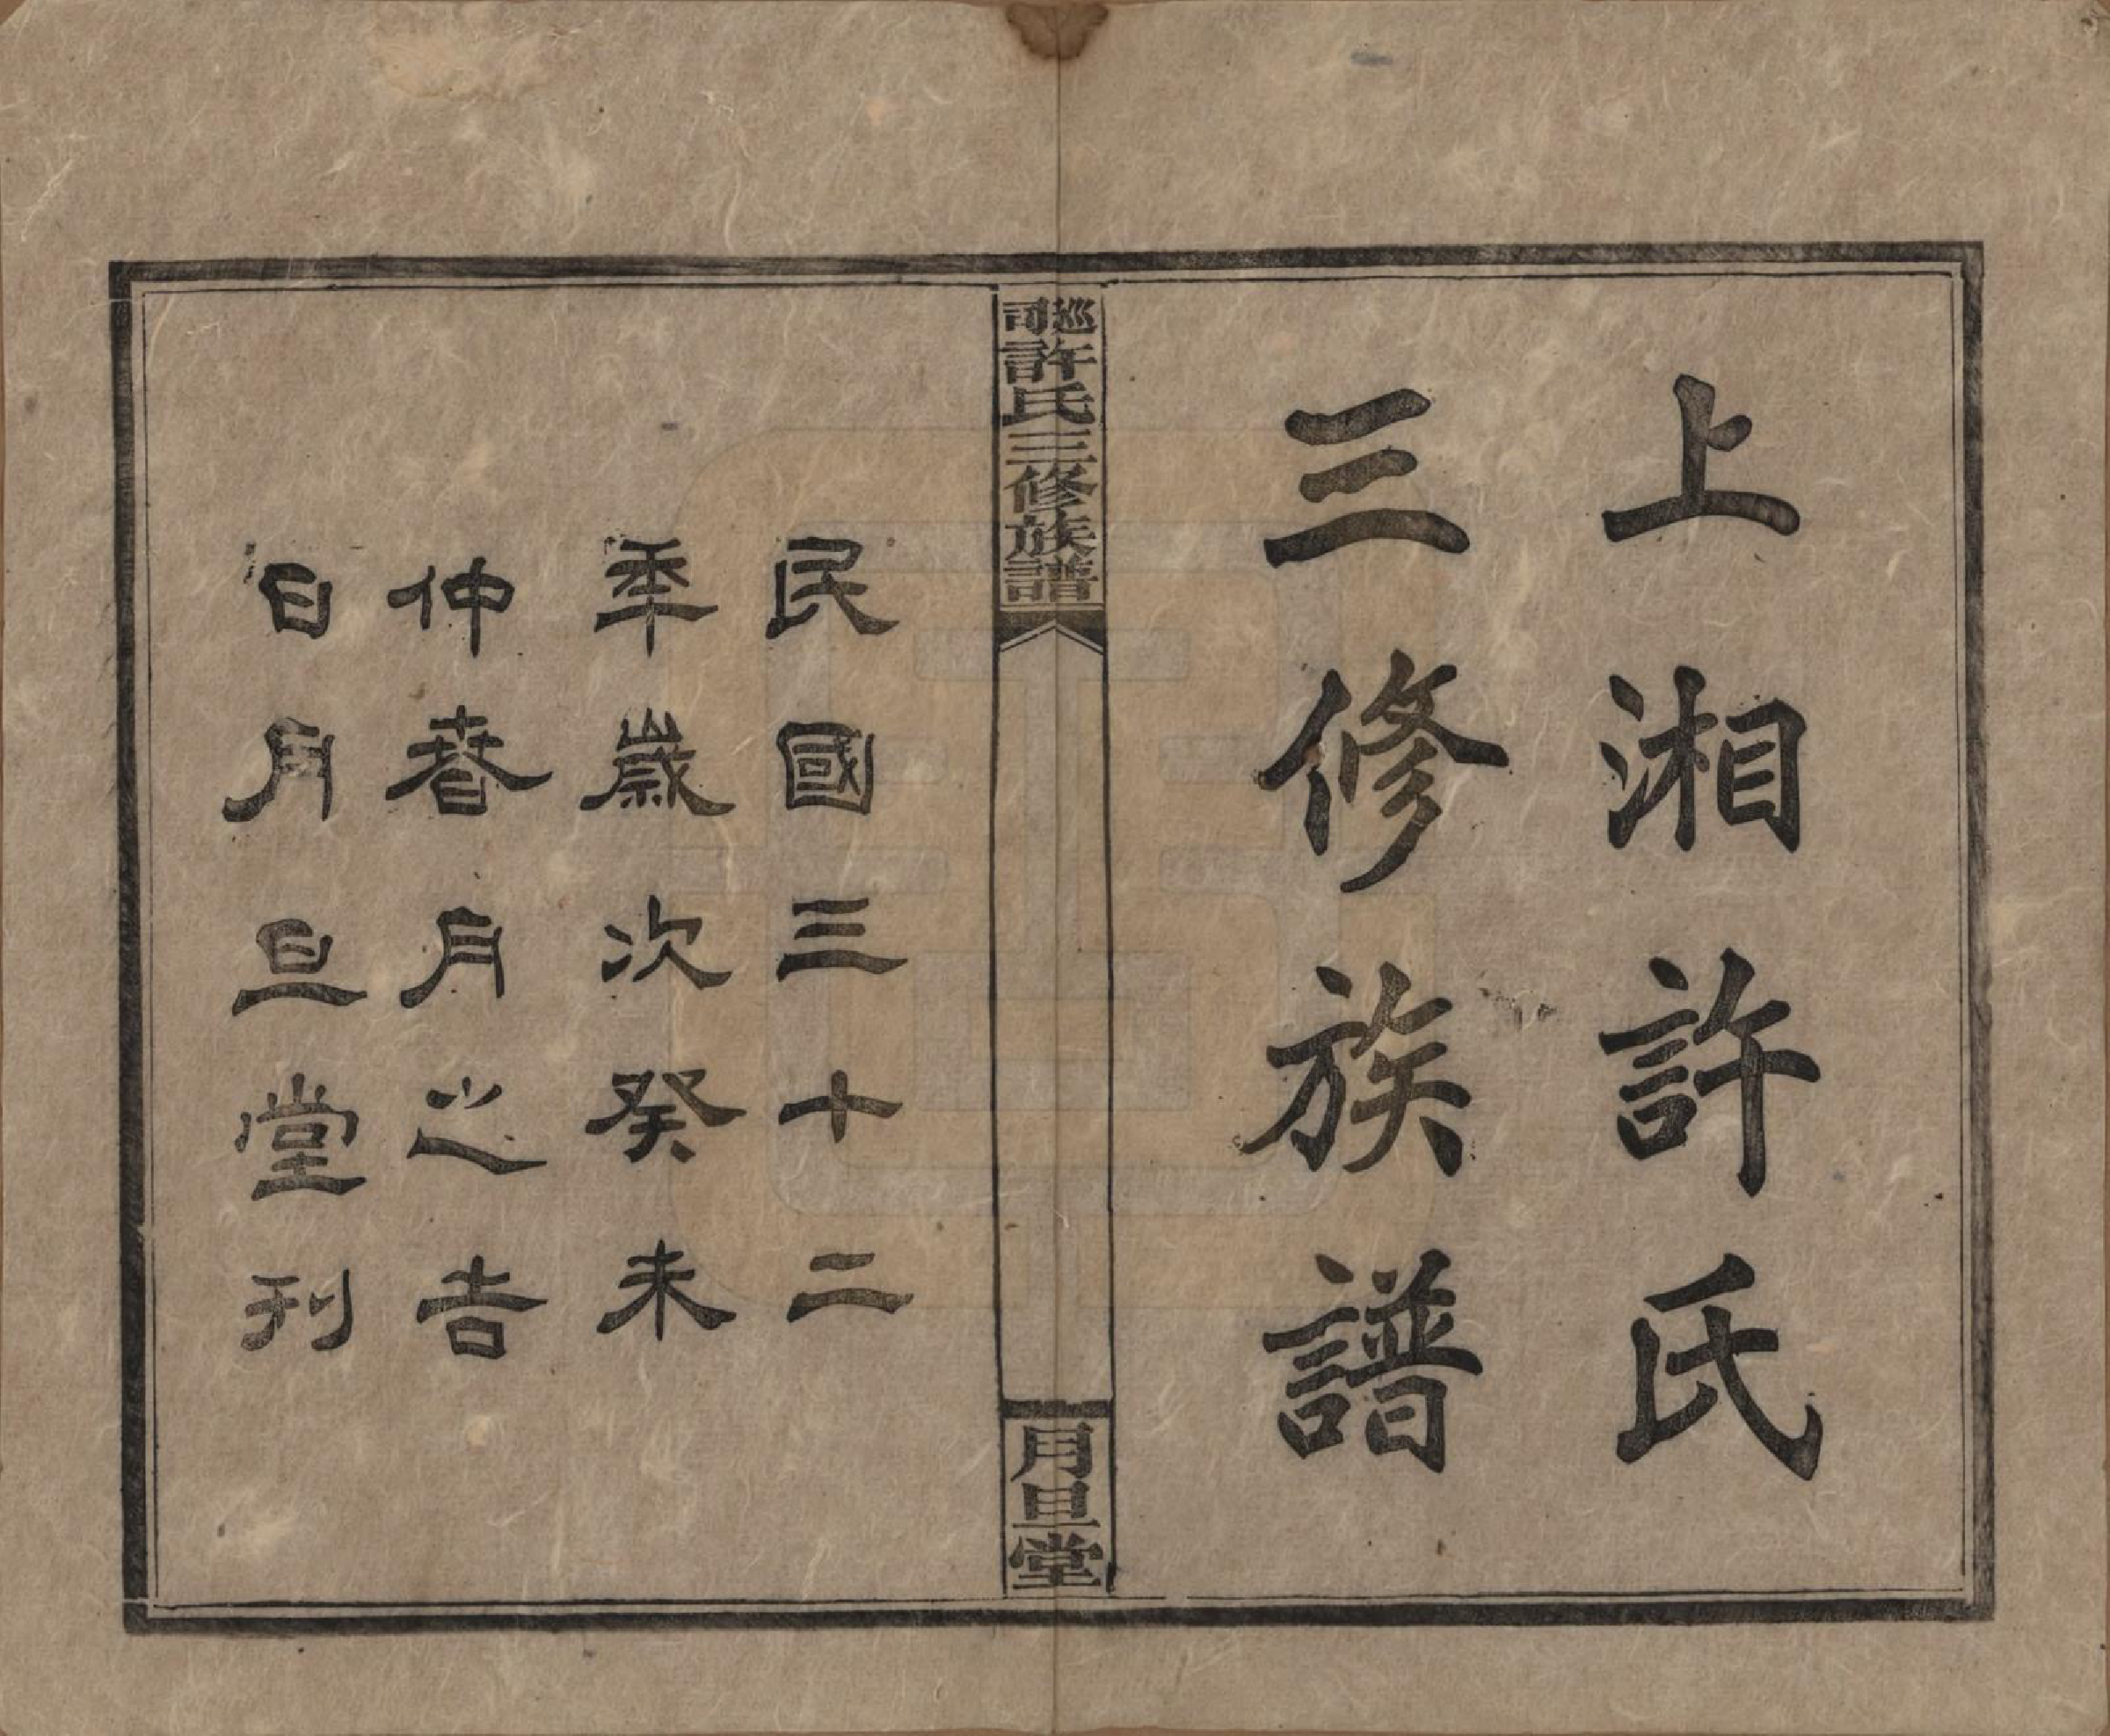 上湘許氏
三修族譜
巡司許氏三修族譜
月旦堂
民國三十二
季歲次癸未
仲春月之吉
日月旦堂刊